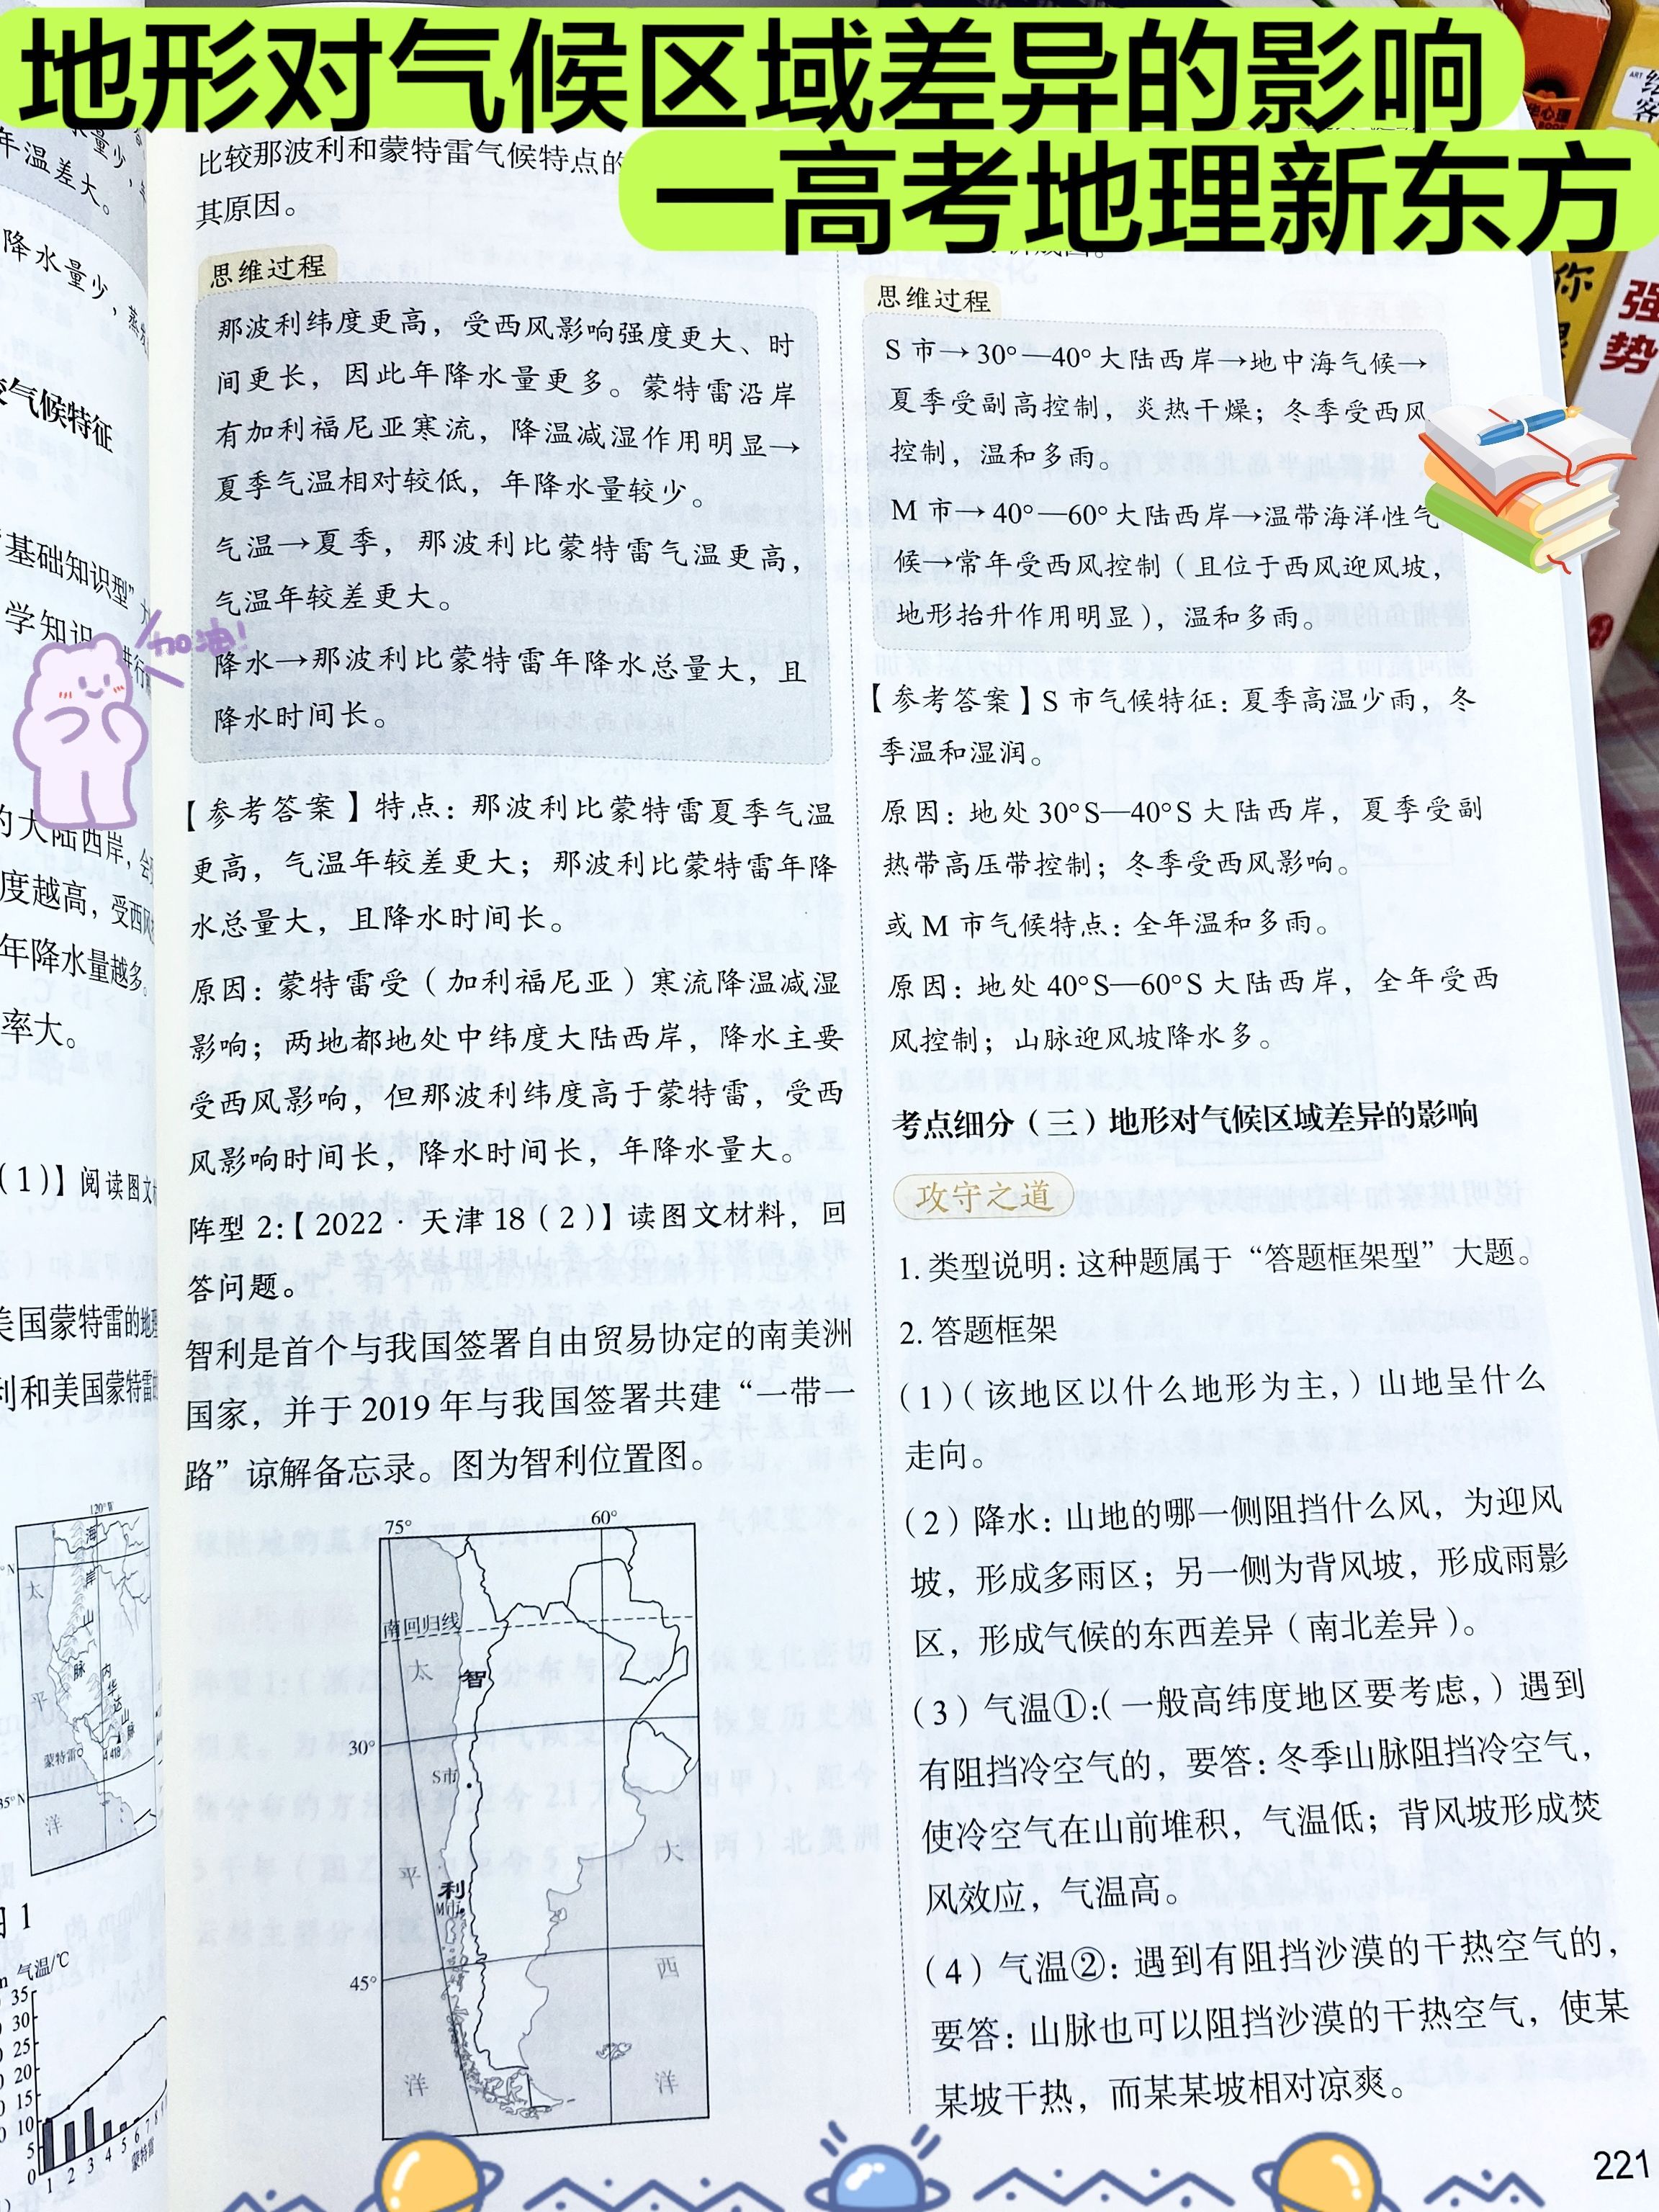 地形对气候区域差异的影响
一高考地理新东方
年温差大。
降水量少，蒸
气候特征
“基础知识型”
学知识
的大陆西岸，会
度越高，受西风
年降水量越多。
率大。
（1）】阅读图文
美国蒙特雷的地
利和美国蒙特雷
120°W
海
岸
山
脉
内
华
达
山
脉
太
平
洋
蒙特雷
4 418
35°N
图1
气温/℃
35
30
25
20
15
10
5
0
1 2 3 4 5 6 7 8
蒙特雷
加油!
比较那波利和蒙特雷气候特点的
其原因。
思维过程
那波利纬度更高，受西风影响强度更大、时
间更长，因此年降水量更多。蒙特雷沿岸
有加利福尼亚寒流，降温减湿作用明显→
夏季气温相对较低，年降水量较少。
气温→夏季，那波利比蒙特雷气温更高，
气温年较差更大。
降水→那波利比蒙特雷年降水总量大，且
降水时间长。
【参考答案】特点：那波利比蒙特雷夏季气温
更高，气温年较差更大；那波利比蒙特雷年降
水总量大，且降水时间长。
原因：蒙特雷受（加利福尼亚）寒流降温减湿
影响；两地都地处中纬度大陆西岸，降水主要
受西风影响，但那波利纬度高于蒙特雷，受西
风影响时间长，降水时间长，年降水量大。
阵型2:【2022·天津18（2）】读图文材料，回
答问题。
智利是首个与我国签署自由贸易协定的南美洲
国家，并于2019年与我国签署共建“一带一
路”谅解备忘录。图为智利位置图。
75° 60°
南回归线
太
智
30°
S市
平
大
利
M市
西
45°
洋 洋
思维过程
S市→30°—40°大陆西岸→地中海气候→
夏季受副高控制，炎热干燥；冬季受西风
控制，温和多雨。
M市→40°—60°大陆西岸→温带海洋性气
候→常年受西风控制（且位于西风迎风坡，
地形抬升作用明显），温和多雨。
【参考答案】S市气候特征：夏季高温少雨，冬
季温和湿润。
原因：地处30°S—40°S大陆西岸，夏季受副
热带高压带控制；冬季受西风影响。
或M市气候特点：全年温和多雨。
原因：地处40°S—60°S大陆西岸，全年受西
风控制；山脉迎风坡降水多。
考点细分（三）地形对气候区域差异的影响
攻守之道
1.类型说明：这种题属于“答题框架型”大题。
2.答题框架
（1）（该地区以什么地形为主，）山地呈什么
走向。
（2）降水：山地的哪一侧阻挡什么风，为迎风
坡，形成多雨区；另一侧为背风坡，形成雨影
区，形成气候的东西差异（南北差异）。
（3）气温①:（一般高纬度地区要考虑，）遇到
有阻挡冷空气的，要答：冬季山脉阻挡冷空气，
使冷空气在山前堆积，气温低；背风坡形成焚
风效应，气温高。
（4）气温②：遇到有阻挡沙漠的干热空气的，
要答：山脉也可以阻挡沙漠的干热空气，使某
某坡干热，而某某坡相对凉爽。
221
ART
你
强
势